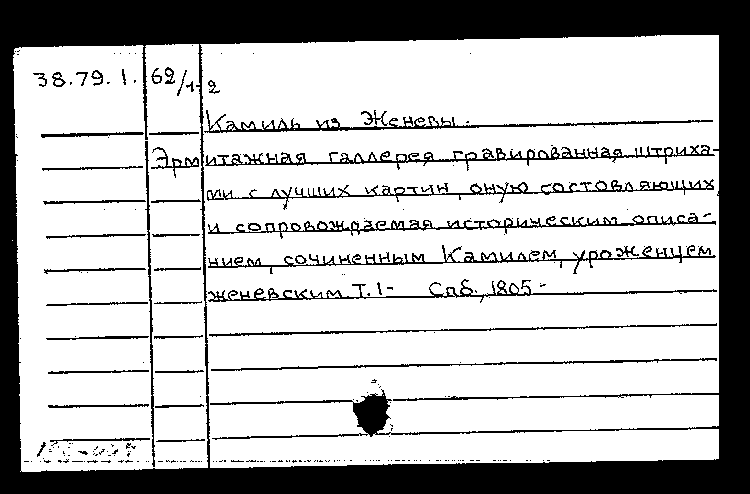 38.79.1. 62/1-2
Камиль из Женевы.
Эрмитажная галлерея гравированная штриха-
ми с лучших картин, оную состовляющих
и сопровождаемая историческим описа-
нием, сочиненным Камилем, уроженцем
женевским. Т.1- Спб., 1805-